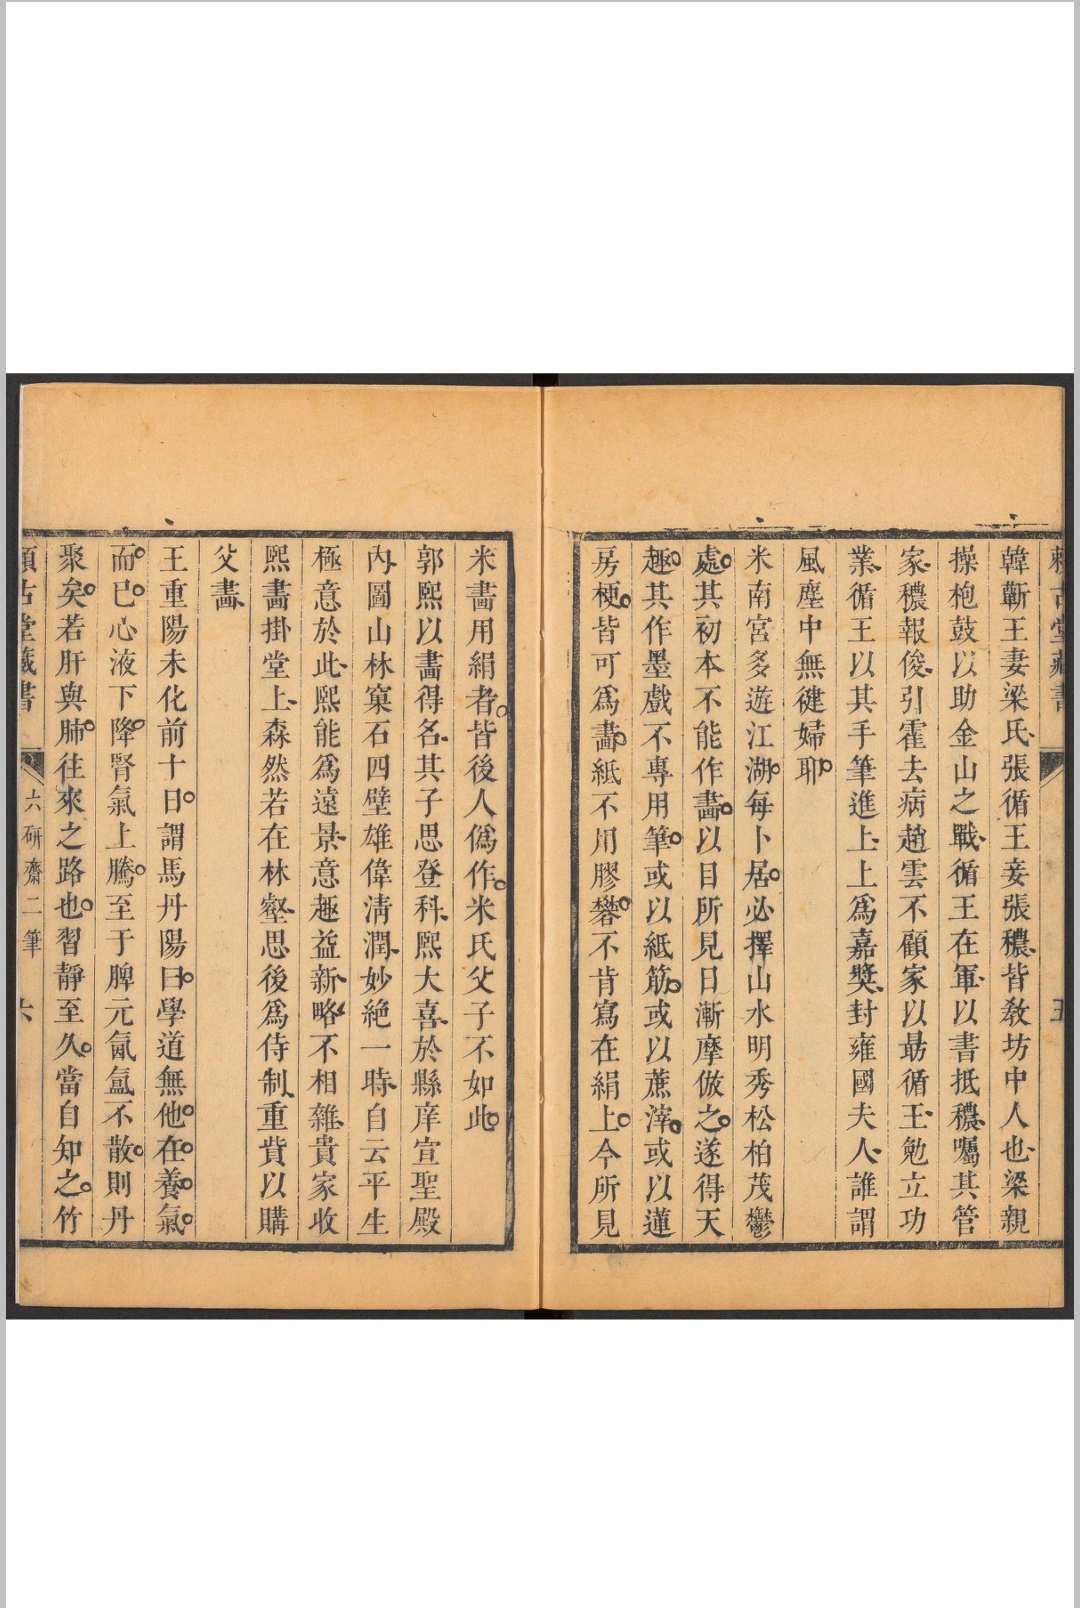 賴古堂藏書
五
韓蘄王妻梁氏張循王妾張穠皆教坊中人也梁親
操枹鼓以助金山之戰循王在軍以書抵穠囑其管
家穠報俊引霍去病趙雲不顧家以勗循王勉立功
業循王以其手筆進上上爲嘉獎封雍國夫人誰謂
風塵中無健婦耶
米南宮多遊江湖每卜居必擇山水明秀松柏茂鬱
處其初本不能作畵以目所見日漸摩倣之遂得天
趣其作墨戲不專用筆或以紙筋或以蔗滓或以蓮
房梗皆可爲畵紙不用膠礬不肯寫在絹上今所見
米畵用絹者皆後人僞作米氏父子不如此
郭熙以畵得名其子思登科熙大喜於縣庠宣聖殿
內圖山林窠石四壁雄偉淸潤妙絶一時自云平生
極意於此熙能爲遠景意趣益新略不相雜貴家收
熙畵掛堂上森然若在林壑思後爲侍制重貲以購
父畵
王重陽未化前十日謂馬丹陽曰學道無他在養氣
而巳心液下降腎氣上騰至于脾元氤氳不散則丹
聚矣若肝與肺往來之路也習靜至久當自知之竹
賴古堂藏書
六研齋二筆
六